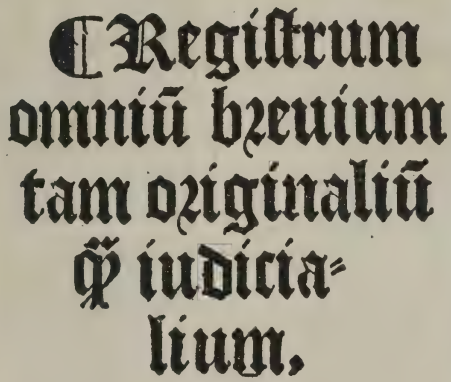 ¶ Regiſtrum
omniū breuium
tam originaliū
q̃ iudicia⸗
lium,